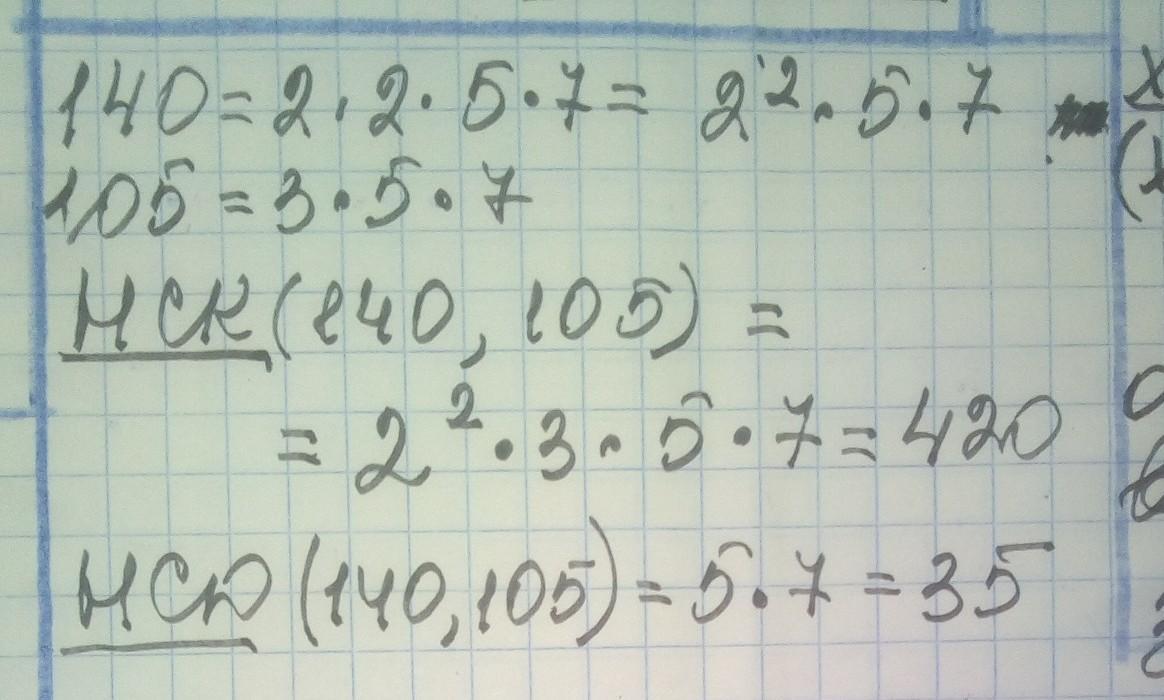 140 = 2 · 2 · 5 · 7 = 2² · 5 · 7
105 = 3 · 5 · 7
НСК (140, 105) =
= 2² · 3 · 5 · 7 = 420
НСД (140, 105) = 5 · 7 = 35